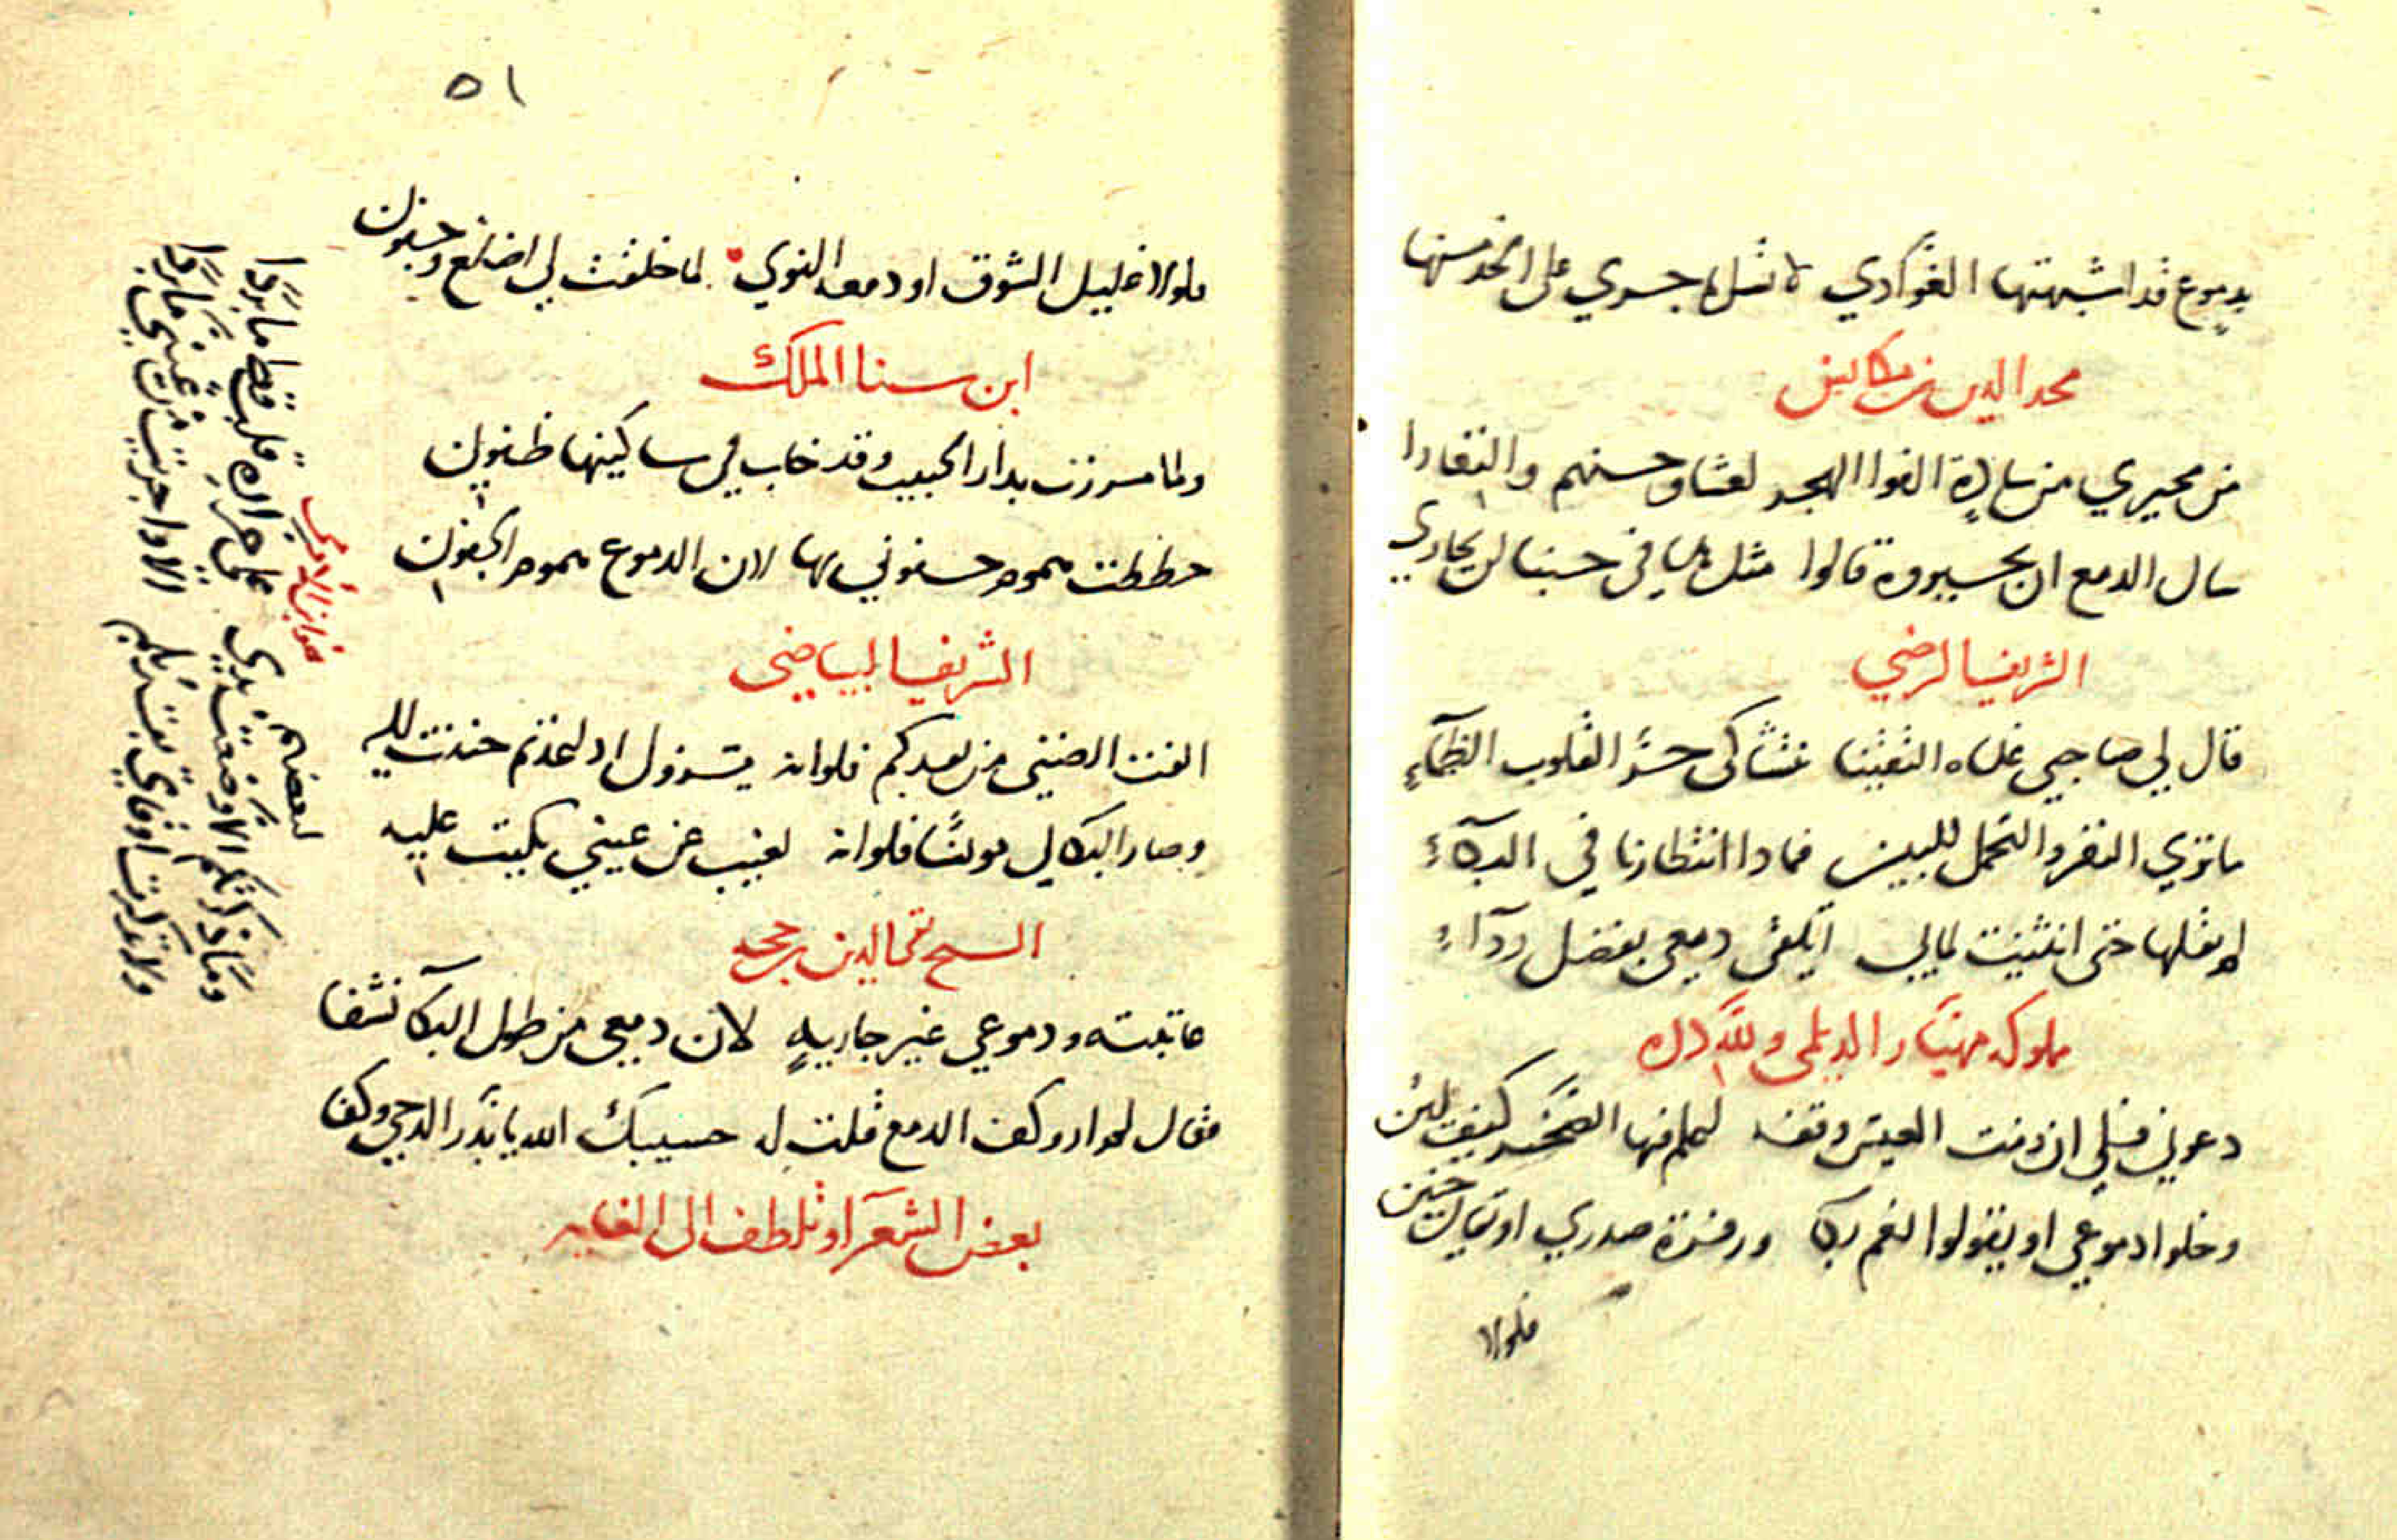 بدموع قد اشبهتها الغوادي لا تسل ما جري على الخد منها
مجد الدين بن مكانس
من مجيري من سادة الفوا الهجر لعشاق حسنهم والنفارا
سال الدمع ان يجيروه قالوا مثل ما في حينا لن يجاري
الشريف الرضي
قال لي صاحبي غداة التقينا نتشاكى حر القلوب الظمآء
ما تري النفر والتحمل للبين فماذا انتظارنا في البكآء
لم يقلها حتى انثنيت لما بي اتلقى دمعي بفضل ردآء
مملوكه مهيار الديلمي ولله دره
دعوني فلي ان زمت العيس وقفة لمعلم فيها الصخر كيف يلين
وخلوا دموعي او يقولوا نعم بكا وزفرة صدري او يقال حزين
فلولا
٥١
فلولا غليل الشوق او دمعة النوي لما خلقت لي اضلع وجفون
ابن سنا الملك
ولما مررت بدار الحبيب وقد خاب في ساكنيها ظنوني
حططت هموم جفوني بها لان الدموع هموم الجفون
الشريف البياضي
الفت الضنى من بعدكم فلو انه يزول اذا عدتم حننت اليه
وصار البكا لي مونسًا فلو انه تغيب عن عيني بكيت عليه
الشيخ تقي الدين بن حجه
عاتبته ودموعي غير جاريه لان دمعي من طول البكآ نشفا
فقال لم ار وكف الدمع قلت له حسيبك الله يا بدر الدجي وكفا
بعض الشعرآ وتلطف الى الغايه
على حر اره قلب قط ما بردا
الا واجريت من عيني ما بردا
لبعضهم
وما ذكرتكم الا وضعت يدي
ولا تذكرت اوقاتي بقربكم